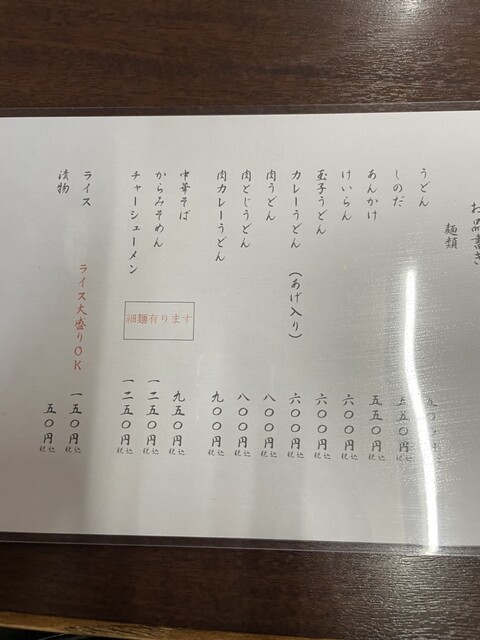 お品書き
麺類
うどん
しのだ 五五〇円 税込
あんかけ 五五〇円 税込
けいらん 六〇〇円 税込
玉子うどん 六〇〇円 税込
カレーうどん (あげ入り) 六〇〇円 税込
肉うどん 八〇〇円 税込
肉とじうどん 八〇〇円 税込
肉カレーうどん 九〇〇円 税込
中華そば 九五〇円 税込
からみそめん 一二五〇円 税込
チャーシューメン 一二五〇円 税込
細麺有ります
ライス ライス大盛りOK 一五〇円 税込
漬物 五〇円 税込